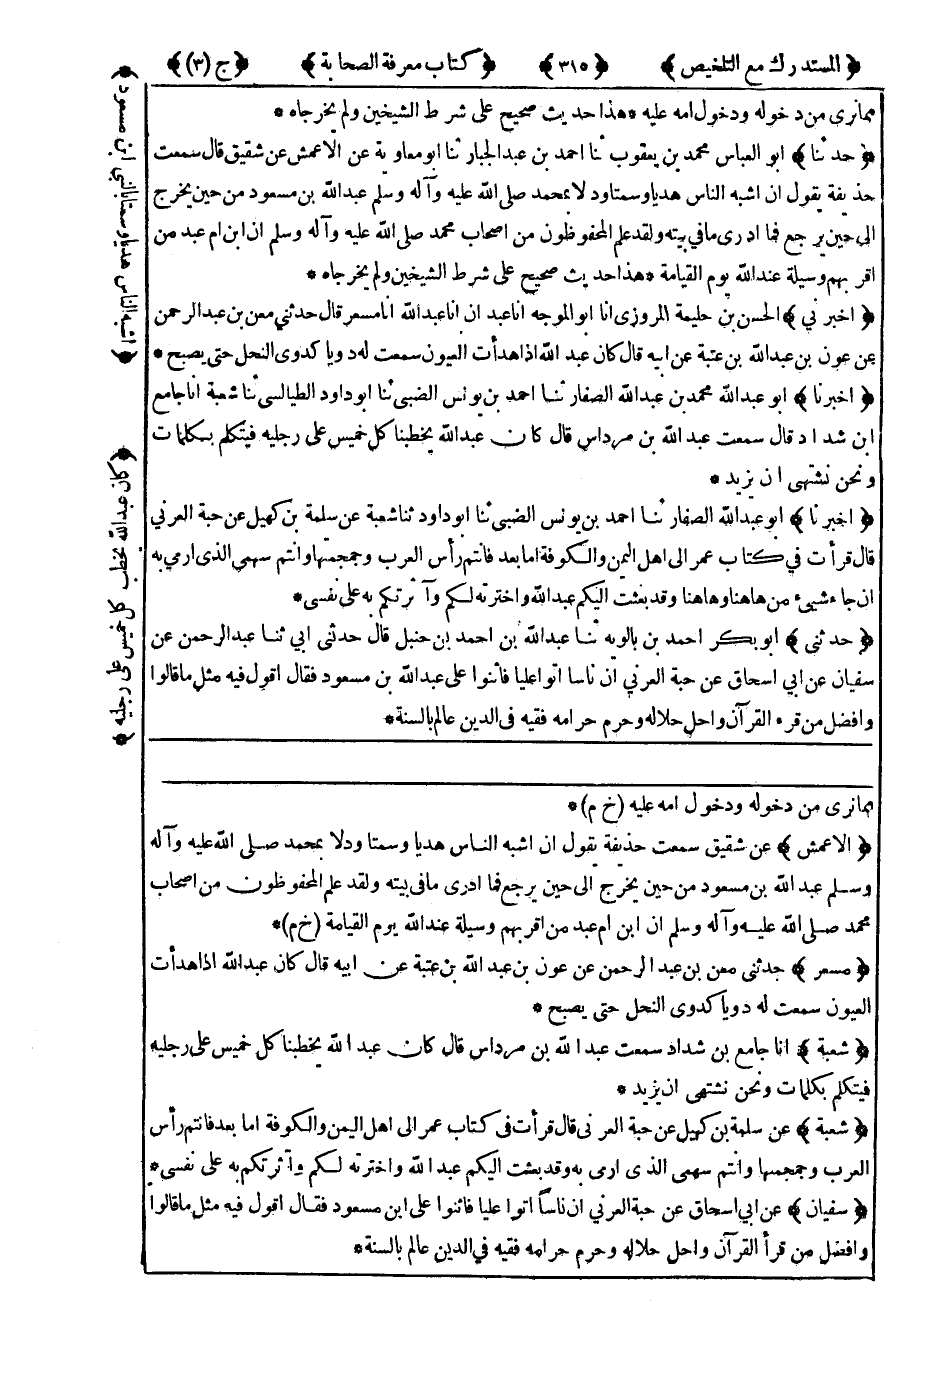 ﴿ المستدرك مع التلخيص ﴾ ﴿ ٣١٥ ﴾ ﴿ كتاب معرفة الصحابة ﴾ ﴿ ج (٣) ﴾
مما نرى من دخوله ودخول امه عليه * هذا حديث صحيح على شرط الشيخين ولم يخرجاه *
﴿ حدثنا ﴾ ابو العباس محمد بن يعقوب ثنا احمد بن عبد الجبار ثنا ابو معاوية عن الاعمش عن شقيق قال سمعت
حذيفة يقول ان اشبه الناس هديا وسمتا ودلا بمحمد صلى الله عليه وآله وسلم عبد الله بن مسعود من حين يخرج
الى حين يرجع فما ادرى ما فى بيته ولقد علم المحفوظون من اصحاب محمد صلى الله عليه وآله وسلم ان ابن ام عبد من
اقربهم وسيلة عند الله يوم القيامة * هذا حديث صحيح على شرط الشيخين ولم يخرجاه *
﴿ اخبرني ﴾ الحسن بن حليمة المروزى انا ابو الموجه انا عبدان انا عبد الله انا مسعر قال حدثني معن بن عبد الرحمن
عن عون بن عبد الله بن عتبة عن ابيه قال كان عبد الله اذا هدأت العيون سمعت له دويا كدوى النحل حتى يصبح *
﴿ اخبرنا ﴾ ابو عبد الله محمد بن عبد الله الصفار ثنا احمد بن يونس الضبى ثنا ابو داود الطيالسى ثنا شعبة انا جامع
ابن شداد قال سمعت عبد الله بن مرداس قال كان عبد الله يخطبنا كل خميس على رجليه فيتكلم بكلمات
ونحن نشتهى ان يزيد *
﴿ اخبرنا ﴾ ابو عبد الله الصفار ثنا احمد بن يونس الضبى ثنا ابو داود ثنا شعبة عن سلمة بن كهيل عن حبة العرني
قال قرأت في كتاب عمر الى اهل اليمن والكوفة اما بعد فانتم رأس العرب وجمجمتها وانتم سهمى الذى ارمي به
ان جاء شيء من هاهنا وهاهنا وقد بعثت اليكم عبد الله واخترته لكم وآثرتكم به على نفسى *
﴿ حدثني ﴾ ابو بكر احمد بن بالويه ثنا عبد الله بن احمد بن حنبل قال حدثنى ابي ثنا عبد الرحمن عن
سفيان عن ابي اسحاق عن حبة العرني ان ناسا اتوا عليا فأثنوا على عبد الله بن مسعود فقال اقول فيه مثل ما قالوا
وافضل من قرء القرآن واحل حلاله وحرم حرامه فقيه فى الدين عالم بالسنة *
مما نرى من دخوله ودخول امه عليه (خ م) *
﴿ الاعمش ﴾ عن شقيق سمعت حذيفة يقول ان اشبه الناس هديا وسمتا ودلا بمحمد صلى الله عليه وآله
وسلم عبد الله بن مسعود من حين يخرج الى حين يرجع فما ادرى ما فى بيته ولقد علم المحفوظون من اصحاب
محمد صلى الله عليه وآله وسلم ان ابن ام عبد من اقربهم وسيلة عند الله يوم القيامة (خ م) *
﴿ مسعر ﴾ حدثنى معن بن عبد الرحمن عن عون بن عبد الله بن عتبة عن ابيه قال كان عبد الله اذا هدأت
العيون سمعت له دويا كدوى النحل حتى يصبح *
﴿ شعبة ﴾ انا جامع بن شداد سمعت عبد الله بن مرداس قال كان عبد الله يخطبنا كل خميس على رجليه
فيتكلم بكلمات ونحن نشتهى ان يزيد *
﴿ شعبة ﴾ عن سلمة بن كهيل عن حبة العرنى قال قرأت فى كتاب عمر الى اهل اليمن والكوفة اما بعد فانتم رأس
العرب وجمجمتها وانتم سهمى الذى ارمى به وقد بعثت اليكم عبد الله واخترته لكم وآثرتكم به على نفسى *
﴿ سفيان ﴾ عن ابي اسحاق عن حبة العرني ان ناساً اتوا عليا فاثنوا على ابن مسعود فقال اقول فيه مثل ما قالوا
وافضل من قرأ القرآن واحل حلاله وحرم حرامه فقيه في الدين عالم بالسنة *
﴿ اشبه الناس هديا وسمتا بالنبي ابن مسعود ﴾
﴿ كان عبد الله يخطب كل خميس على رجليه ﴾